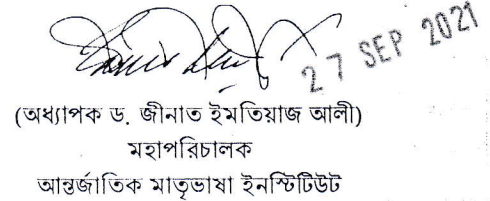 27 SEP 2021
(অধ্যাপক ড. জীনাত ইমতিয়াজ আলী)
মহাপরিচালক
আন্তর্জাতিক মাতৃভাষা ইনস্টিটিউট